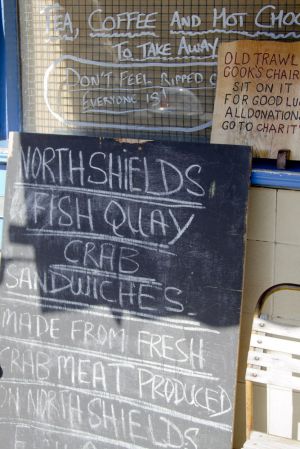 TEA, COFFEE AND HOT CHOC
TO TAKE AWAY
DON'T FEEL RIPPED O
EVERYONE IS!
OLD TRAWL
COOKS CHAIR
SIT ON IT
FOR GOOD LU
ALL DONATION
GO TO CHARIT
NORTH SHIELDS
FISH QUAY
CRAB
SANDWICHES.
MADE FROM FRESH
CRAB MEAT PRODUCED
ON NORTH SHIELDS